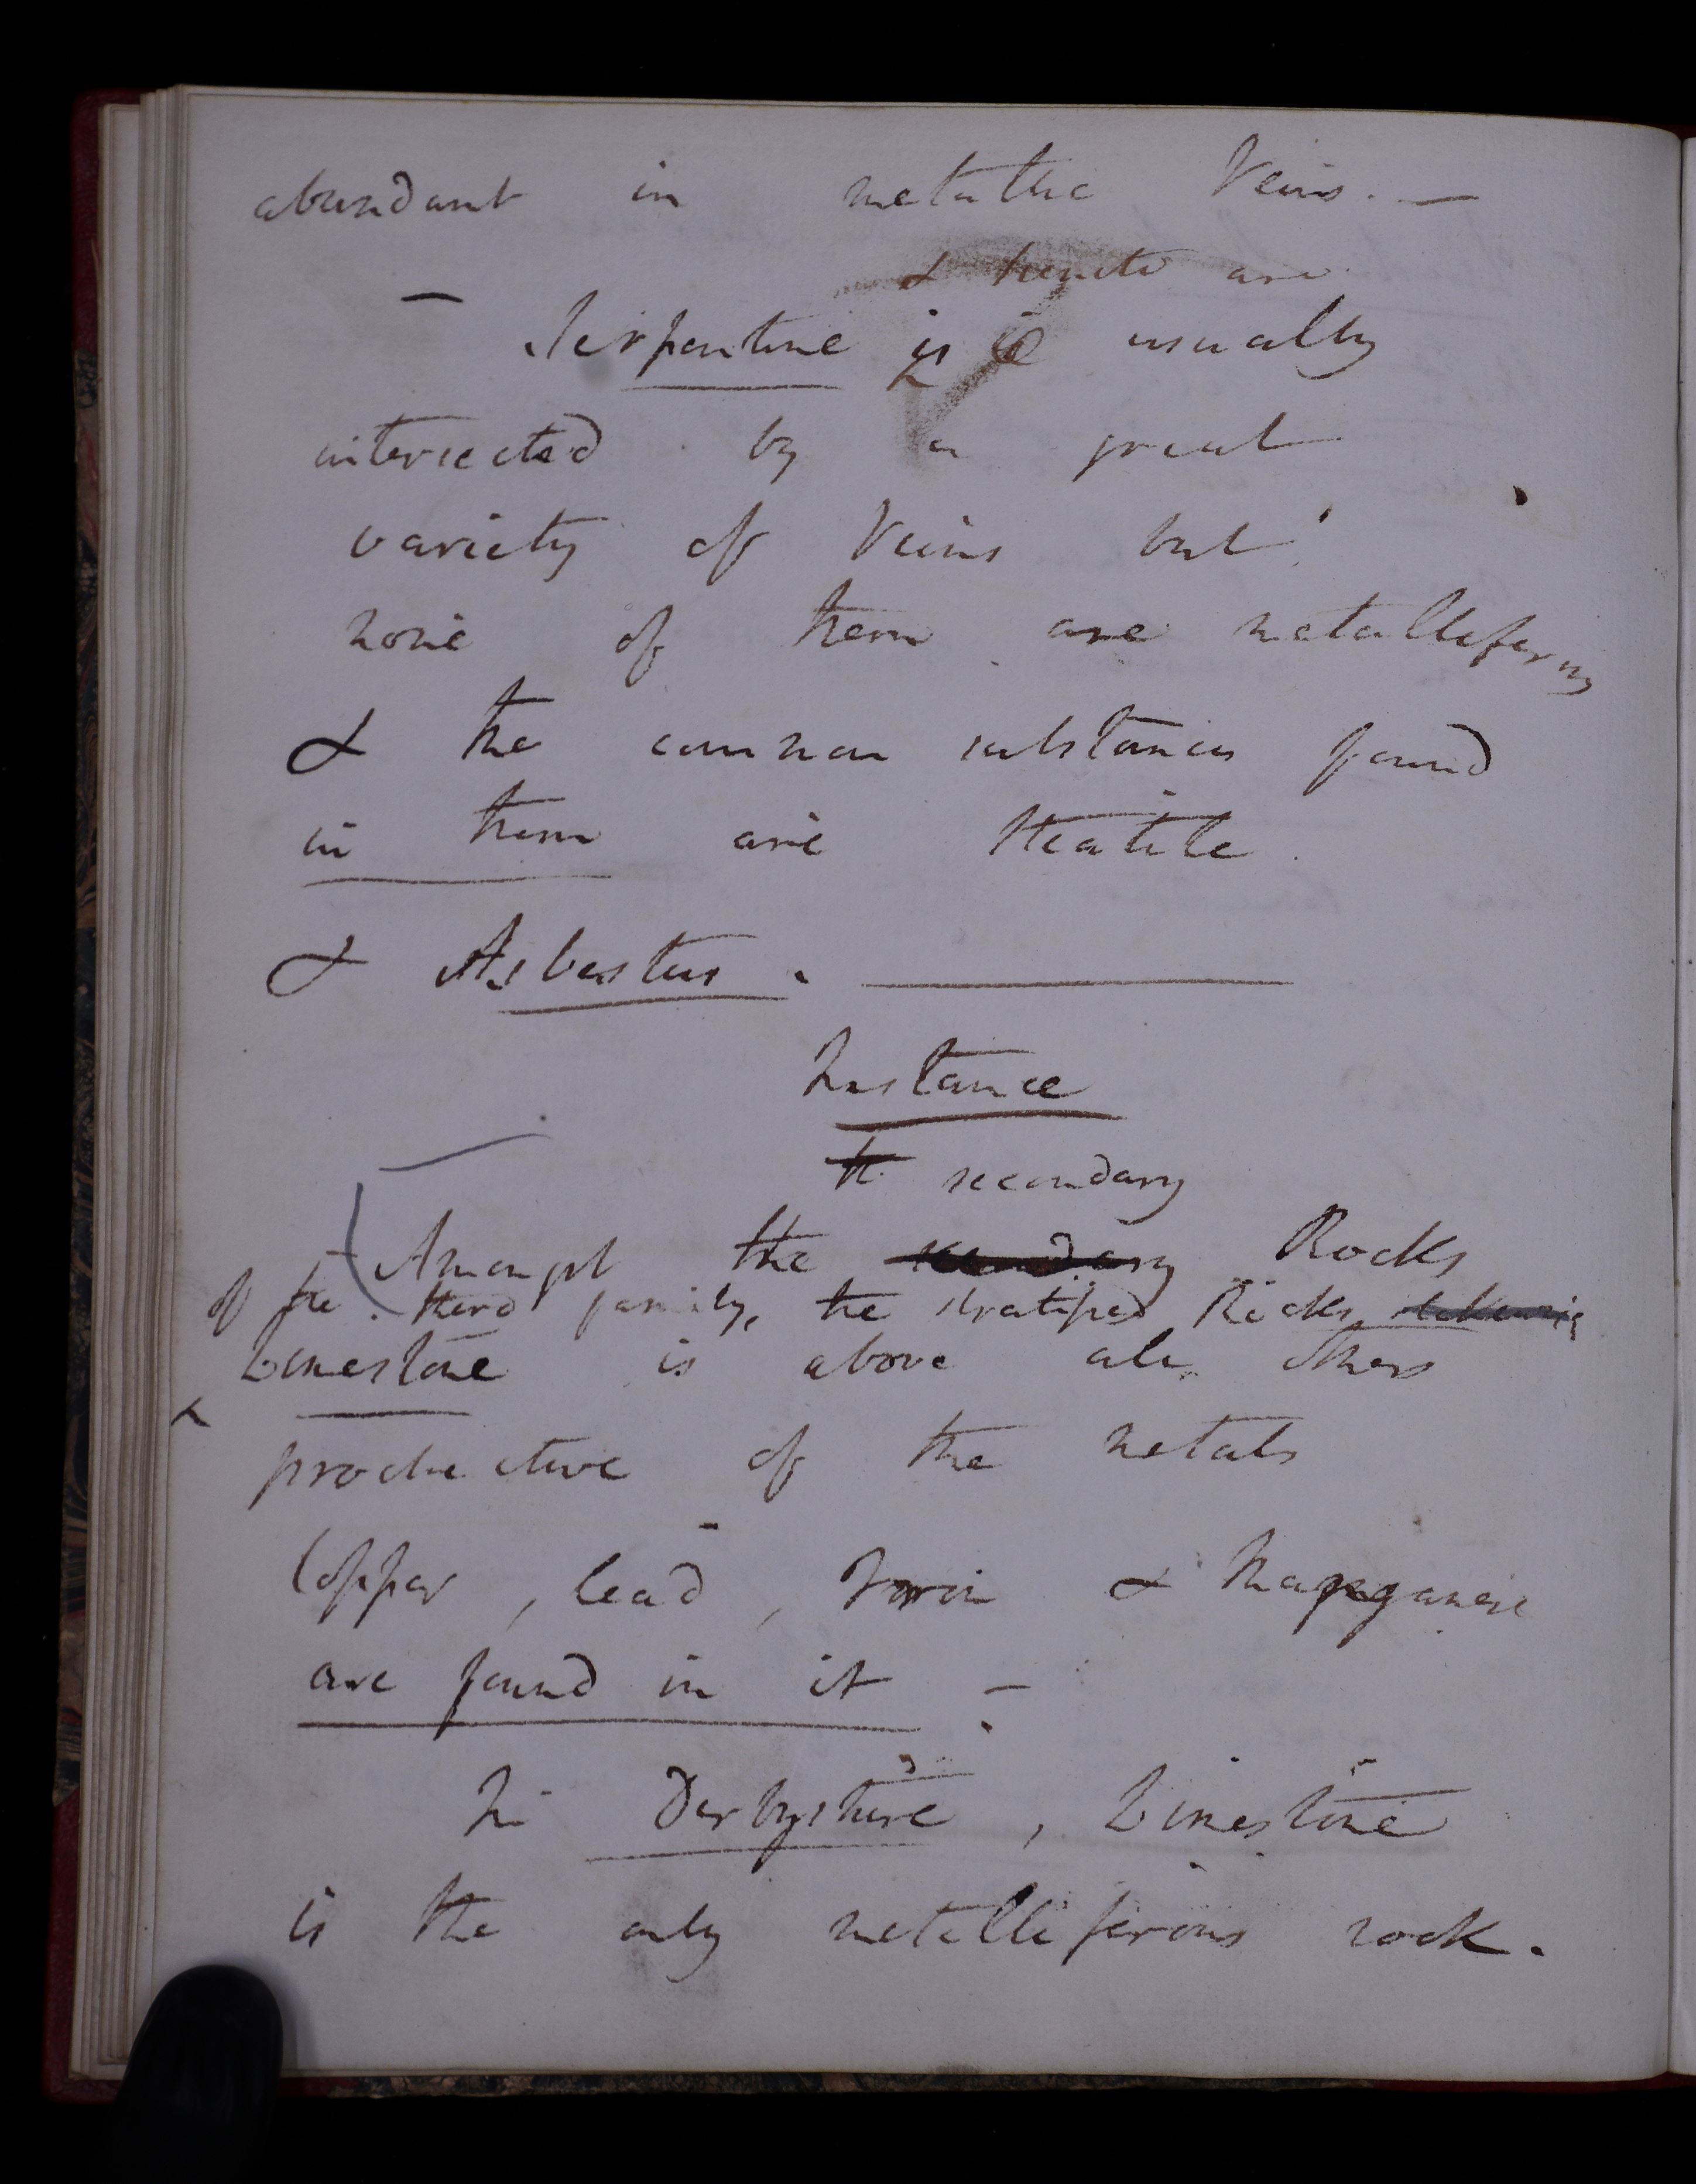 abundant in metallic Veins. —
& are
— Serpentine is usually
intersected by a great
variety of Veins but
none of them are metalliferous
& the common substances found
in them are Steatite
& Asbestus. —
Instance
th secondary
Amongst the secondary Rocks
of the third family, the stratified Rocks
Limestone is above all others
productive of the metals
Copper, lead, Iron & Manganese
are found in it —
In Derbyshire, Limestone
is the only metalliferous rock.